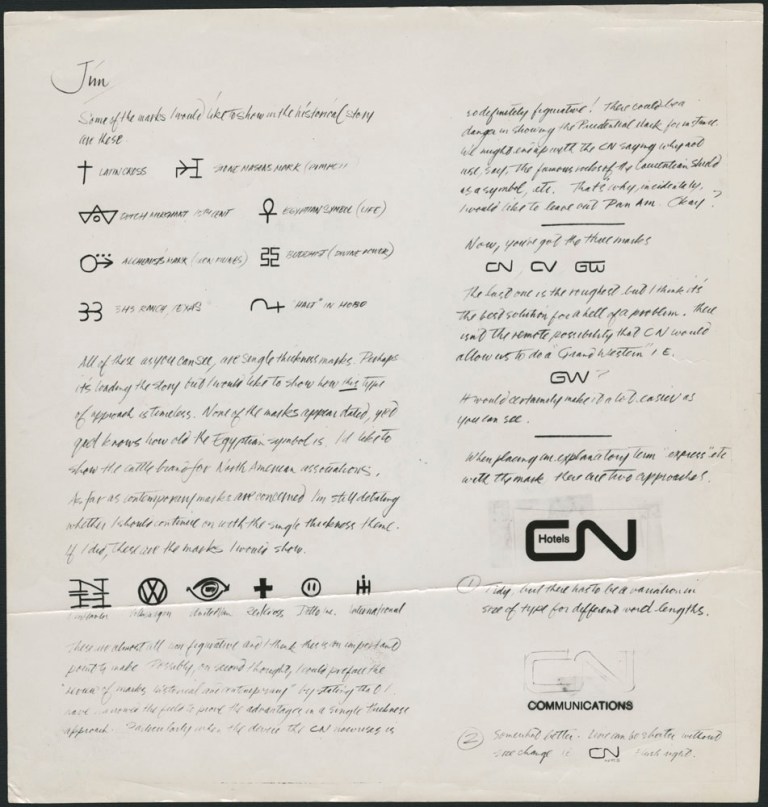 Jim
Some of the marks I would like to show in the historical story
are these
LATIN CROSS
STONE MASONS MARK
EGYPTIAN SYMBOL (LIFE)
ALCHEMISTS MARK
BUDDHIST (DIVINE POWER)
3H3 RANCH TEXAS
"HALT" IN HOBO
All of these as you can see, are single thickness marks. Perhaps
it's loading the story but I would like to show how this type
of approach is timeless. None of the marks appear dated, yet
god knows how old the Egyptian symbol is. I'd like to
show the cattle brand for North American associations.
As far as contemporary marks are concerned I'm still debating
whether I should continue on with the single thickness theme.
If I did, these are the marks I would show.
Volkswagen Red Cross International
These are almost all non figurative and I think this is an important
point to make. Possibly, on second thought, I would preface the
"review of marks, historical and contemporary" by stating the
the field to prove the advantages in a single thickness
approach. Particularly when the device the CN now uses is
so definitely figurative! There could be a
danger in showing the Prudential Mark for instance.
We might end up with the CN saying why not
use, say, the famous rocks of the Laurentian Shield
as a symbol, etc. That's why, incidentally,
I would like to leave out Pan Am. Okay?
Now, you've got the three marks
CN CV GW
The last one is the roughest but I think it's
the best solution for a hell of a problem. There
isn't the remote possibility that CN would
allow us to do a "Grand Western" I.E.
GW ?
It would certainly make it a lot easier as
you can see.
When placing an explanatory term "express" etc
with the mark there are two approaches.
CN
Hotels
① Tidy, but there has to be a variation in
size of type for different word lengths.
CN
COMMUNICATIONS
② Somewhat better. Line can be shorter without
size change CN flush right.